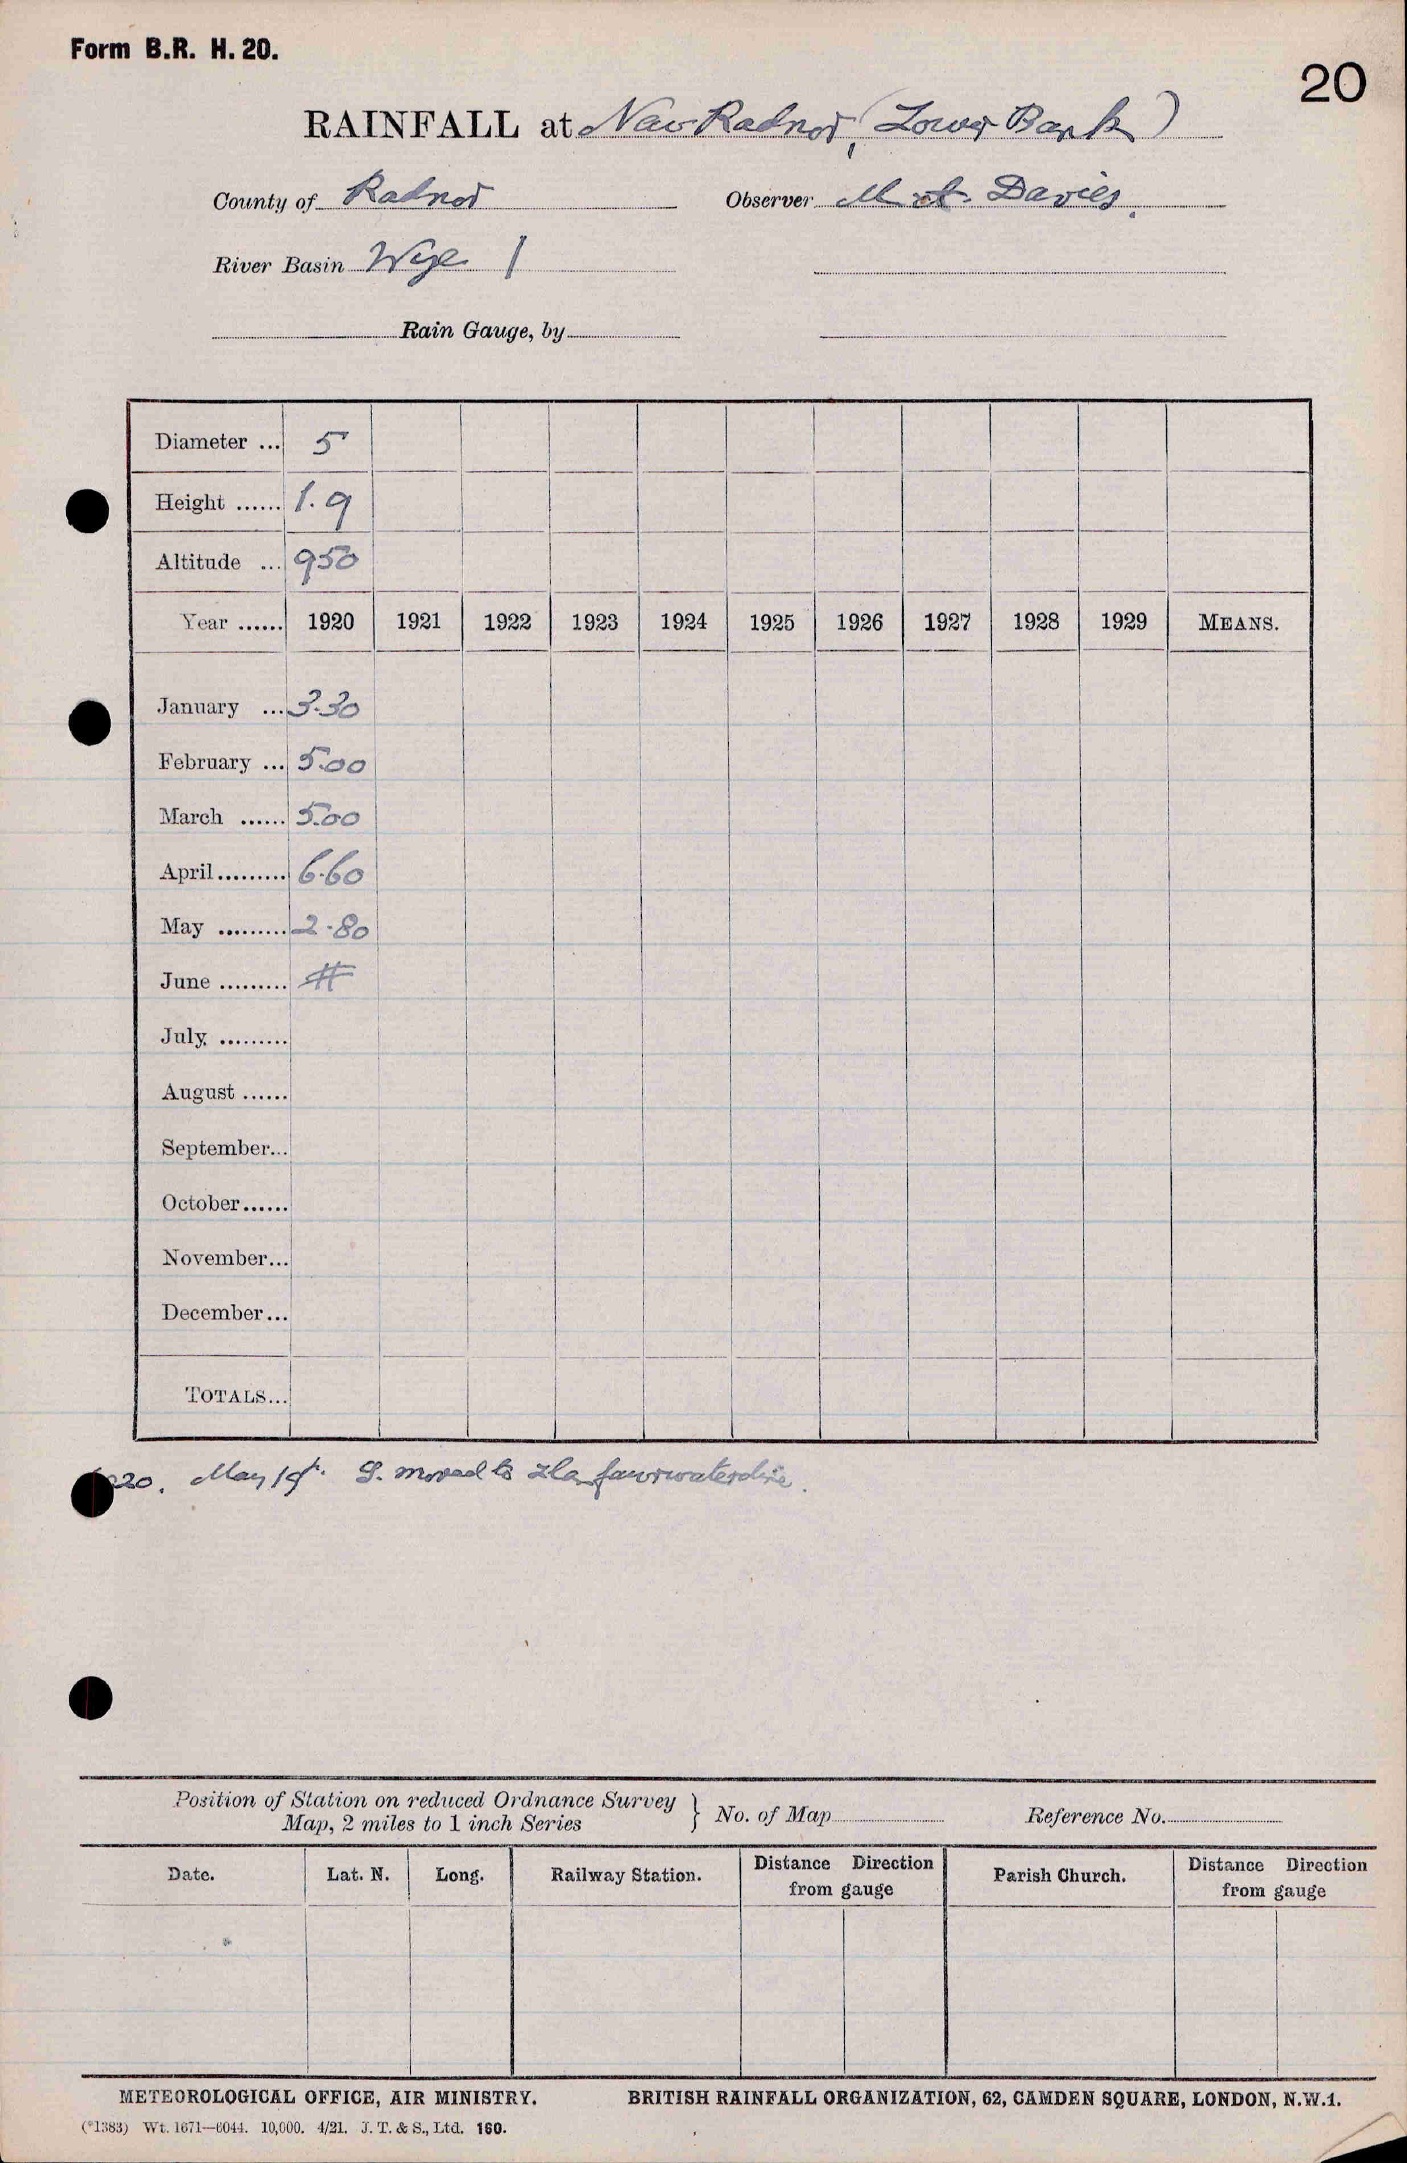 Form B.R. H. 20.
20
RAINFALL at New Radnor, (Lower Bank)
County of Radnor Observer M. A. Davies.
River Basin Wye 1
Rain Gauge, by
Diameter ... 5
Height ...... 1.9
Altitude ... 950
Year ...... 1920 1921 1922 1923 1924 1925 1926 1927 1928 1929 MEANS.
January ... 3.30
February ... 5.00
March ...... 5.00
April ......... 6.60
May ......... 2.80
June ......... #
July .........
August ......
September...
October......
November...
December...
TOTALS...
20. May 19 G. moved to
Position of Station on reduced Ordnance Survey
Map, 2 miles to 1 inch Series } No. of Map Reference No.
Date. Lat. N. Long. Railway Station. Distance Direction from gauge Parish Church. Distance Direction from gauge
METEOROLOGICAL OFFICE, AIR MINISTRY. BRITISH RAINFALL ORGANIZATION, 62, CAMDEN SQUARE, LONDON, N.W.1.
(*1383) Wt. 1671—6044. 10,000. 4/21. J. T. & S., Ltd. 160.